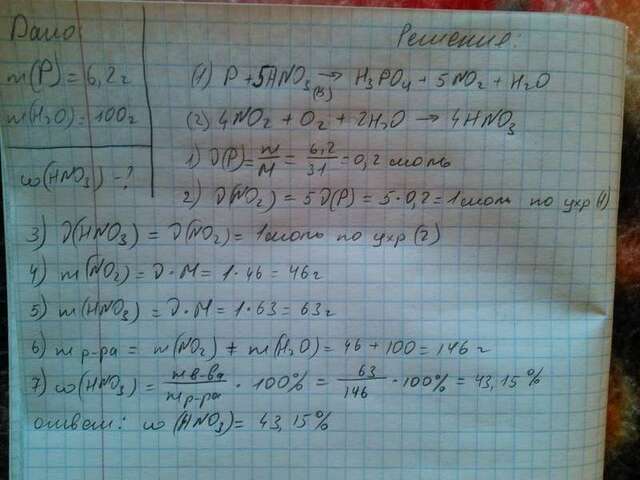 Дано
m(P) = 6,2г
m(H₂O) = 100г
ω(HNO₃) - ?
Решение:
(1) P + 5HNO₃(к) → H₃PO₄ + 5NO₂ + H₂O
(2) 4NO₂ + O₂ + 2H₂O → 4HNO₃
1) ν(P) = m/M = 6,2/31 = 0,2 моль
2) ν(NO₂) = 5ν(P) = 5·0,2 = 1моль по ухр (1)
3) ν(HNO₃) = ν(NO₂) = 1моль по ухр (2)
4) m(NO₂) = ν·M = 1·46 = 46г
5) m(HNO₃) = ν·M = 1·63 = 63г
6) m р-ра = m(NO₂) + m(H₂O) = 46 + 100 = 146 г
7) ω(HNO₃) = m в-ва/m р-ра · 100% = 63/146 · 100% = 43,15%
ответ: ω (HNO₃) = 43,15%